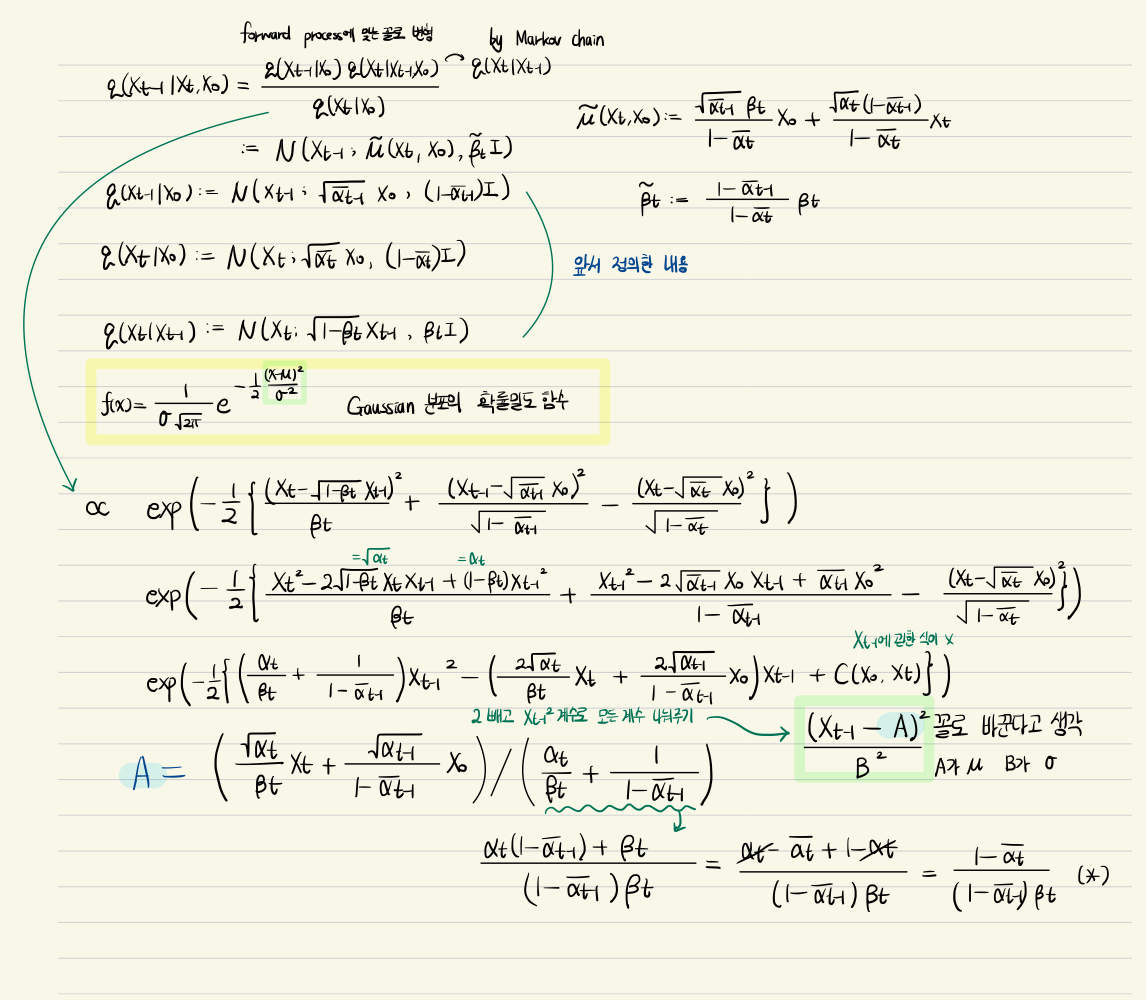 forward process에 맞는 꼴로 변형
by Markov chain
q(Xt-1|Xt,X0) = q(Xt-1|X0) q(Xt|Xt-1,X0) / q(Xt|X0)
q(Xt|Xt-1)
:= N(Xt-1; μ̃(Xt, X0), β̃tI)
μ̃(Xt,X0) := √ᾱt-1 βt / 1-ᾱt X0 + √αt(1-ᾱt-1) / 1-ᾱt Xt
q(Xt-1|X0) := N(Xt-1; √ᾱt-1 X0, (1-ᾱt-1)I)
β̃t := 1-ᾱt-1 / 1-ᾱt βt
q(Xt|X0) := N(Xt; √ᾱt X0, (1-ᾱt)I)
앞서 정의한 내용
q(Xt|Xt-1) := N(Xt; √1-βt Xt-1, βtI)
f(x) = 1 / σ√2π e^(-1/2 (x-μ)²/σ²) Gaussian 분포의 확률밀도 함수
∝ exp(-1/2{(Xt-√1-βt Xt-1)² / βt + (Xt-1-√ᾱt-1 X0)² / √1-ᾱt-1 - (Xt-√ᾱt X0)² / √1-ᾱt})
=√αt =αt
exp(-1/2{Xt²-2√1-βt Xt Xt-1+(1-βt)Xt-1² / βt + Xt-1²-2√ᾱt-1 X0 Xt-1+ᾱt-1 X0² / 1-ᾱt-1 - (Xt-√ᾱt X0)² / √1-ᾱt})
Xt-1에 관한 식이 x
exp(-1/2{(αt/βt + 1/1-ᾱt-1)Xt-1² - (2√αt/βt Xt + 2√ᾱt-1/1-ᾱt-1 X0)Xt-1 + C(X0, Xt)})
2 빼고 Xt-1² 계수로 모든 계수 나눠주기
(Xt-1 - A)² / B² 꼴로 바꾼다고 생각
A가 μ B가 σ
A = (√αt/βt Xt + √ᾱt-1/1-ᾱt-1 X0) / (αt/βt + 1/1-ᾱt-1)
αt(1-ᾱt-1)+βt / (1-ᾱt-1)βt = αt-ᾱt+1-αt / (1-ᾱt-1)βt = 1-ᾱt / (1-ᾱt-1)βt (*)